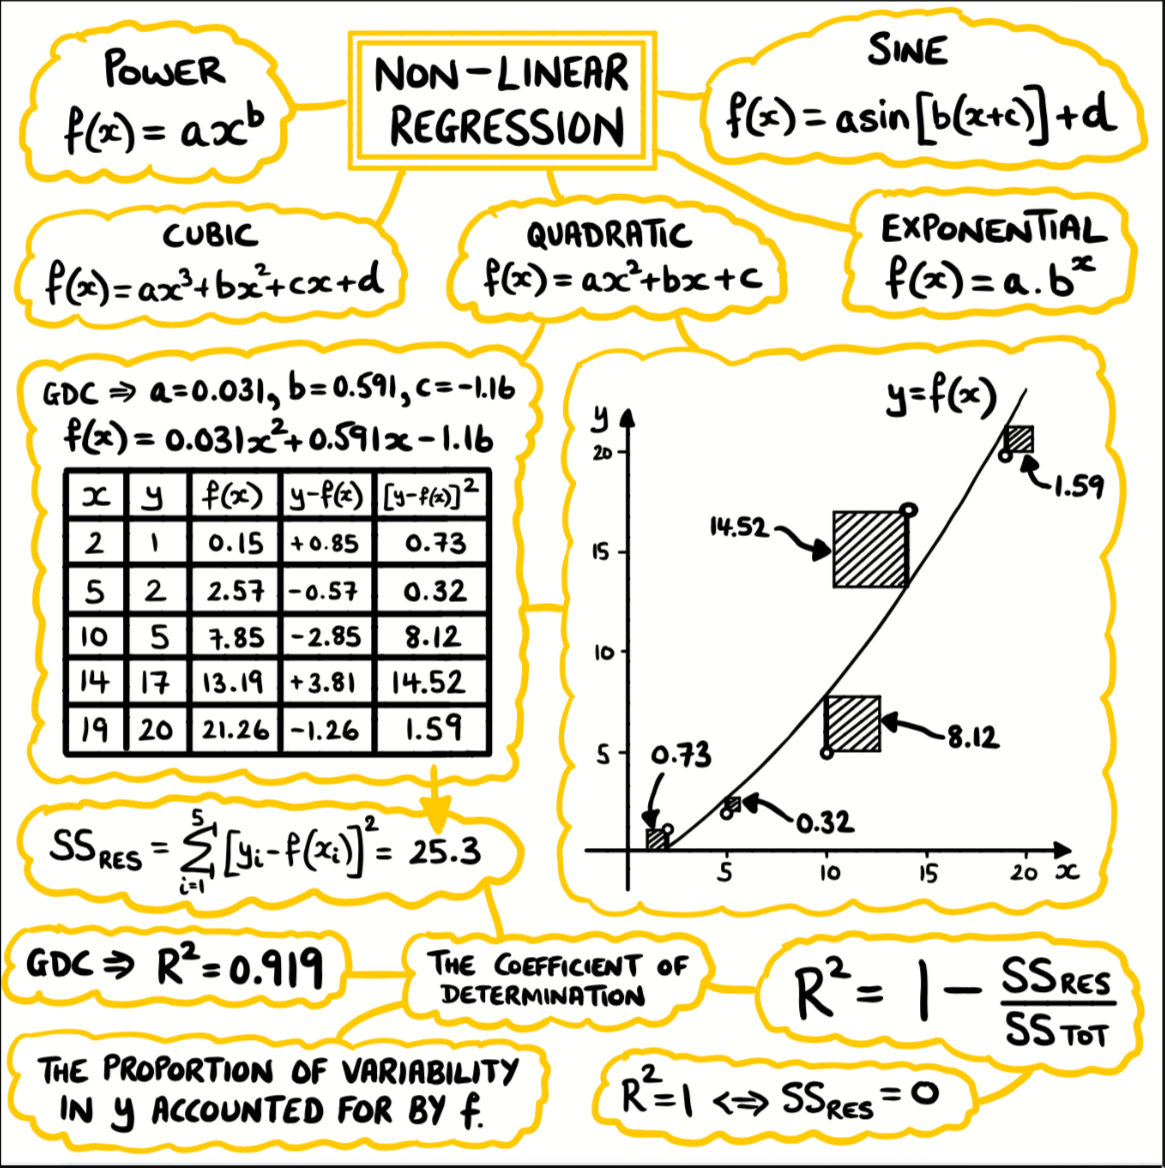 POWER
f(x) = ax^b
NON-LINEAR
REGRESSION
SINE
f(x) = asin[b(x+c)]+d
CUBIC
f(x)=ax³+bx²+cx+d
QUADRATIC
f(x)= ax²+bx+c
EXPONENTIAL
f(x)= a.b^x
GDC ⇒ a=0.031, b=0.591, c=-1.16
f(x)= 0.031x²+0.591x-1.16
x y f(x) y-f(x) [y-f(x)]²
2 1 0.15 +0.85 0.73
5 2 2.57 -0.57 0.32
10 5 7.85 -2.85 8.12
14 17 13.19 +3.81 14.52
19 20 21.26 -1.26 1.59
y=f(x)
y
20
1.59
14.52
15
10
8.12
5
0.73
0.32
5 10 15 20 x
SS_RES = ∑_{i=1}^{5} [y_i-f(x_i)]² = 25.3
GDC ⇒ R²=0.919
THE COEFFICIENT OF
DETERMINATION
R² = 1 - SS_RES / SS_TOT
THE PROPORTION OF VARIABILITY
IN y ACCOUNTED FOR BY f.
R²=1 <=> SS_RES = 0